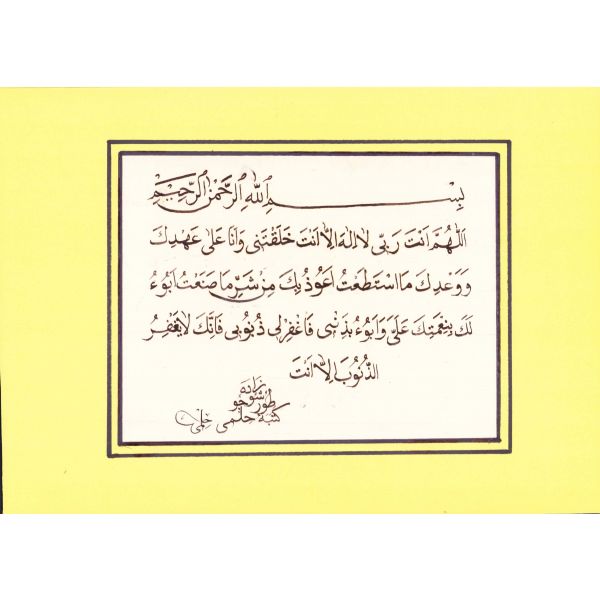 بِسْمِ اللهِ الرَّحْمٰنِ الرَّحِيْمِ
اَللّٰهُمَّ اَنْتَ رَبِّى لَا اِلٰهَ اِلَّا اَنْتَ خَلَقْتَنِى وَاَنَا عَلٰى عَهْدِكَ
وَوَعْدِكَ مَا اسْتَطَعْتُ اَعُوذُ بِكَ مِنْ شَرِّ مَا صَنَعْتُ اَبُوءُ
لَكَ بِنِعْمَتِكَ عَلَىَّ وَاَبُوءُ بِذَنْبِى فَاغْفِرْ لِى ذُنُوبِى فَاِنَّكَ لَا يَغْفِرُ
الذُّنُوبَ اِلَّا اَنْتَ
زاده
كتبه حلمى